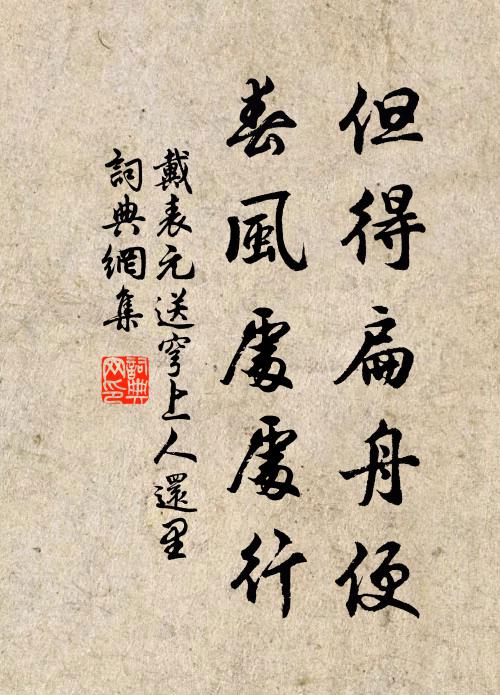 但得扁舟便
春風處處行
戴表元送穹上人還里
詞典網集
詞典網印